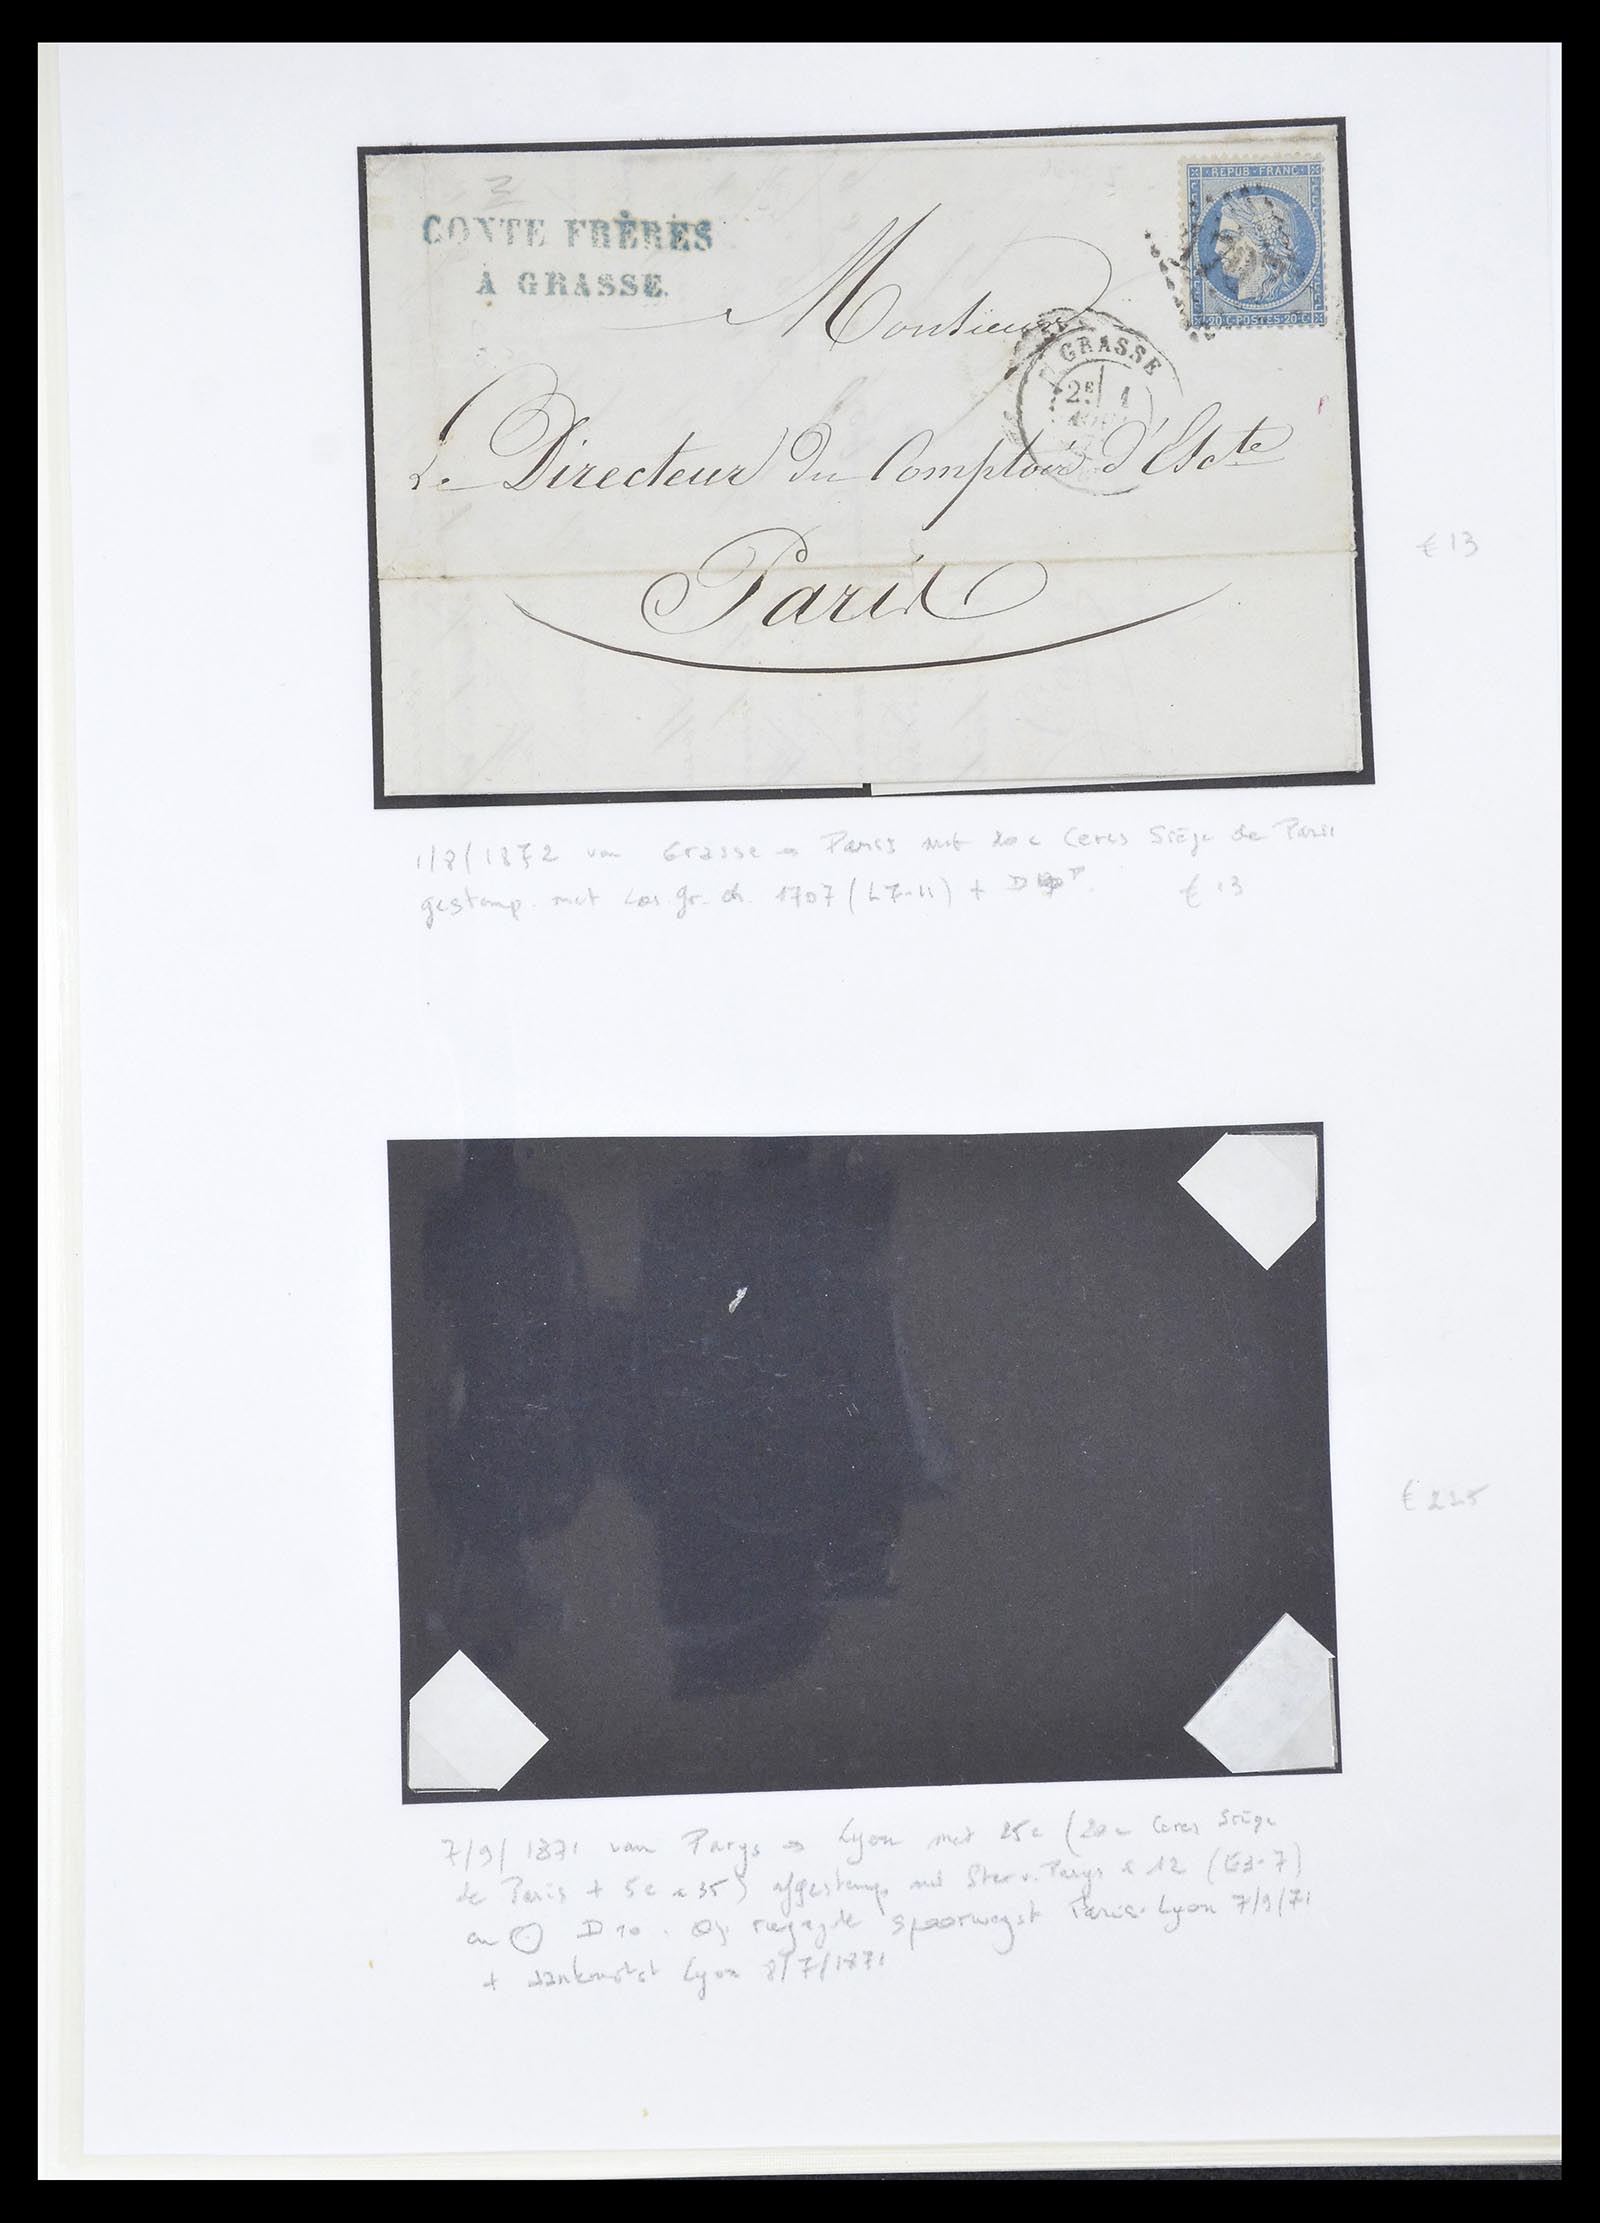 CONTE FRÈRES
À GRASSE.
REPUB·FRANC
20·C·POSTES·20·C
Monsieur
GRASSE
2E 1
Le Directeur du Comptoir d'Escte
Paris
€ 13
1/8/1872 van Grasse → Paris met 20c Ceres Siège de Paris
gestemp. met Los. gr. ch. 1707 (L7-11) + D
€ 13
€ 225
7/9/1871 van Parys → Lyon met 25c (20c Ceres Siège
de Paris + 5c n 35) afgestemp met Ster v. Parys 12 (G3-7)
en D10. Op spoorwegst Paris-Lyon 7/9/71
+ aankomstst Lyon 8/7/1871